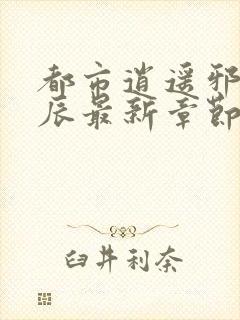 都市逍遥邪
辰最新章節
臼井利奈